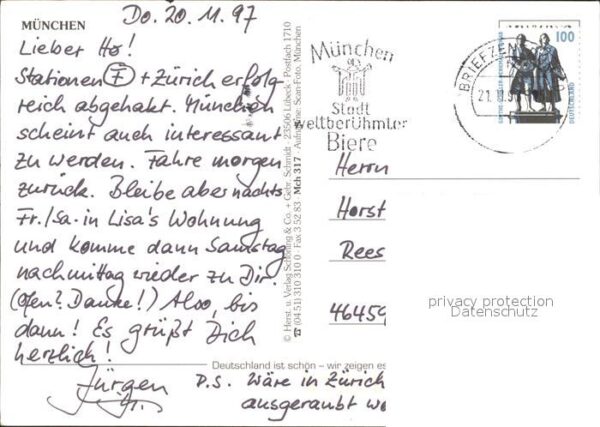 MÜNCHEN
Do. 20.11.97
Lieber Ho!
Stationen F + Zürich erfolg-
reich abgehakt. München
scheint auch interessant
zu werden. Fahre morgen
zurück. Bleibe aber nachts
Fr./Sa. in Lisa's Wohnung
und komme dann Samstag
nachmittag wieder zu Dir.
(Ofen? Danke!) Also, bis
dann! Es grüßt Dich
herzlich!
Jürgen
P.S. Wäre in Zürich
ausgeraubt
© Herst. u. Verlag Schöning & Co. + Gebr. Schmidt · 23506 Lübeck · Postfach 1710
(04 51) 310 310 0 · Fax 3 52 83 · Mch 317 · Aufnahme: Scan-Foto, München
Deutschland ist schön – wir zeigen es
München
Stadt
weltberühmter
Biere
BRIEFZEN
100
DEUTSCHLAND
Herrn
Horst
Rees
46459
privacy protection
Datenschutz